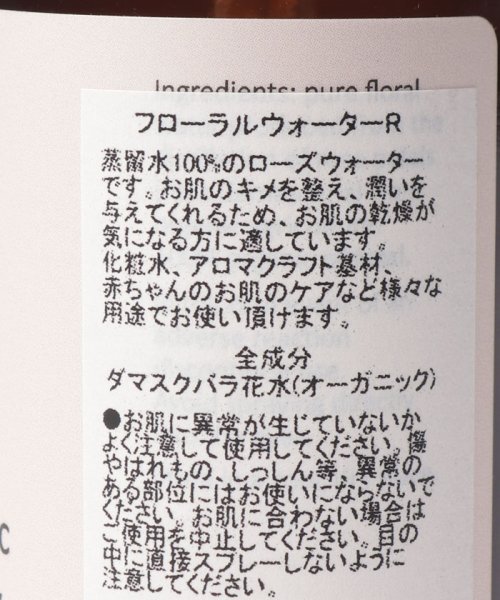 Ingredients: pure floral
フローラルウォーターR
蒸留水100%のローズウォーター
です。お肌のキメを整え、潤いを
与えてくれるため、お肌の乾燥が
気になる方に適しています。
化粧水、アロマクラフト基材、
赤ちゃんのお肌のケアなど様々な
用途でお使い頂けます。
全成分
ダマスクバラ花水(オーガニック)
●お肌に異常が生じていないか
よく注意して使用してください。傷
やはれもの、しっしん等、異常の
ある部位にはお使いにならないで
ください。お肌に合わない場合は
ご使用を中止してください。目の
中に直接スプレーしないように
注意してください。